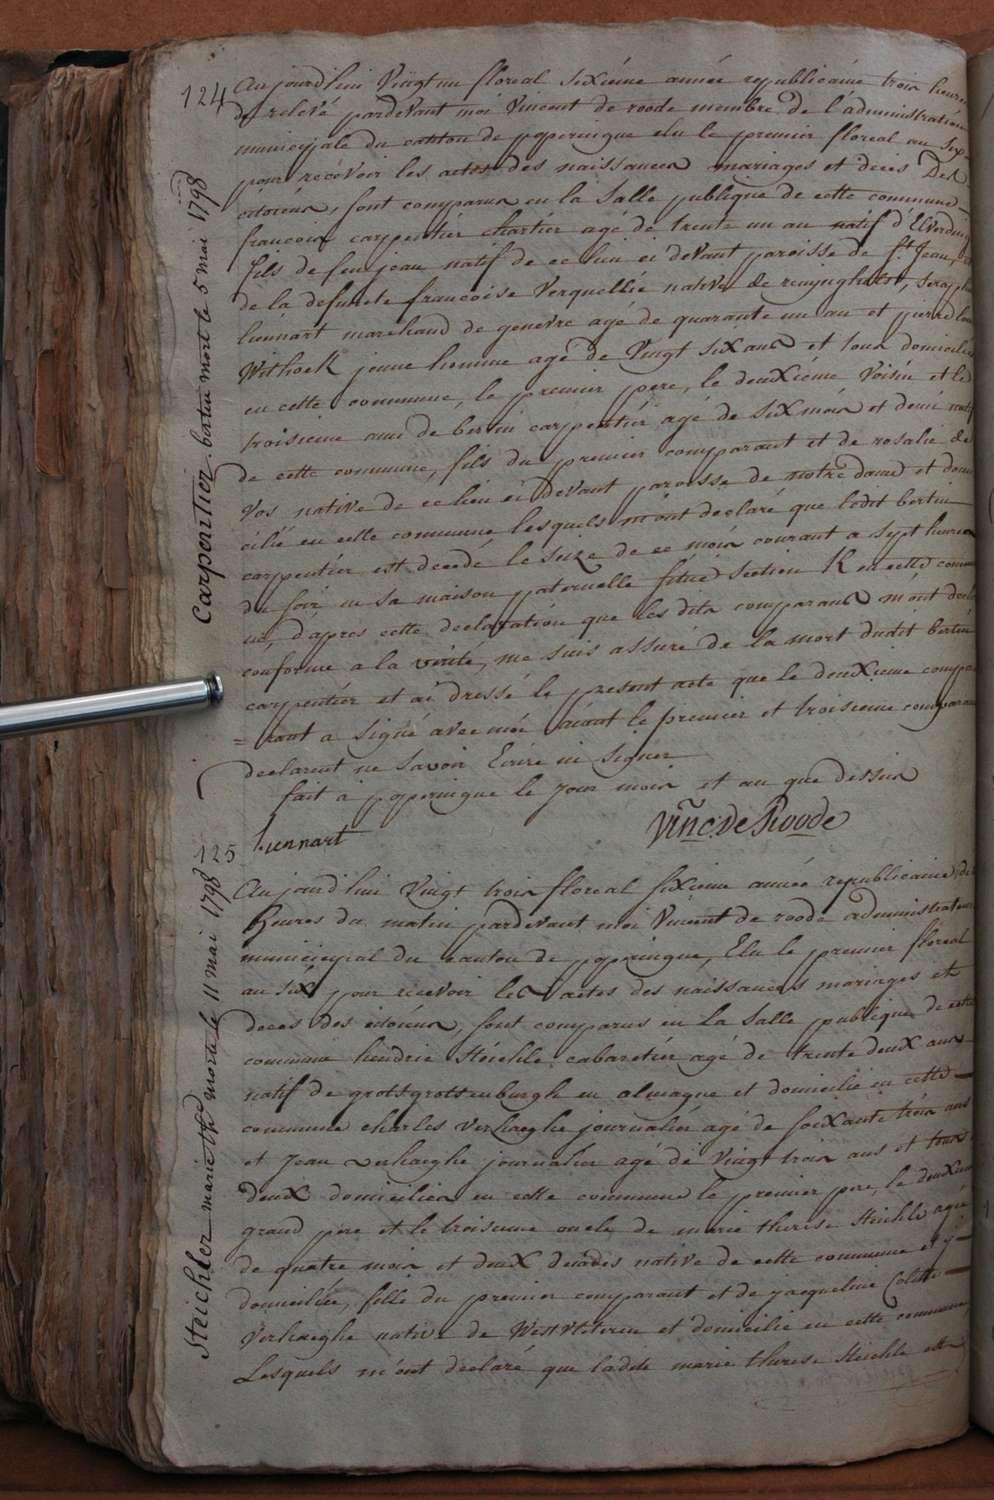 124
Aujourd'hui Vingt un floreal sixiéme année republicaine trois heures
de relevé pardevant moi Vincent de roode membre de l'administration
municipale du canton de poperingue elu le premier floreal an six
pour recevoir les actes des naissances mariages et deces Des
citoiens, sont comparus en la salle publique de cette commune
francois carpentier chartier agé de trente un an natif d'Elverding
fils de feu jean natif de ce lieu ci devant paroisse de St Jean, et
de la defuncte francoise Verquellié native de reninghelst, seraph
liennart marchand de genevre agé de quarante un an et pierre
Withoek jeune homme agé de Vingt six ans et tous domicilié
en cette commune, le premier pere, le deuxiéme Voisin et le
troisieme ami de bertin carpentier agé de six mois et demi natif
de cette commune, fils du premier comparant et de rosalie de
Vos native de ce lieu ci devant paroisse de notre dame et domi
cilié en cette commune lesquels m'ont declaré que ledit bertin
carpentier est decedé le seize de ce mois courant a sept heures
du soir en sa maison paternelle situé section K en cette commu
ne, d'apres cette declaration que les dits comparans m'ont declaré
conforme a la vérité, me suis assuré de la mort dudit bertin
carpentier et ai dressé le present acte que le deuxieme compa
= rant a signé avec moi aiant le premier et troisieme comparans
declarent ne savoir Ecrire ni signer
fait a poperingue le jour mois et an que dessus
Liennart Vinc. De Roode
Carpentier bertin mort le 5 mai 1798
125
Aujourd'hui Vingt trois floreal sixieme année republicaine, dix
heures du matin pardevant moi Vincent de roode administrateur
municipal du canton de poperingue, Elu le premier floreal
an six pour recevoir les actes des naissances mariages et
deces des citoiens, sont comparus en La salle publique de cette
commune hendric steichle cabaretier agé de trente deux ans
natif de grotsgrotsenburgh en almagne et domicilié en cette
commune charles verhaeghe journalier agé de soixante trois ans
et Jean verhaeghe journalier agé de Vingt trois ans et tous
deux domiciliés en cette commune le premier pere, le deuxieme
grand pere et le troisieme oncle de marie therese steichle agée
de quatre mois et deux decades native de cette commune et y
domiciliée, fille du premier comparant et de jacqueline Colette
Verhaeghe native de Westvleteren et domicilié en cette commune
Lesquels m'ont declaré que ladite marie therese steichle est
Steichler marie thse morte le 11 mai 1798